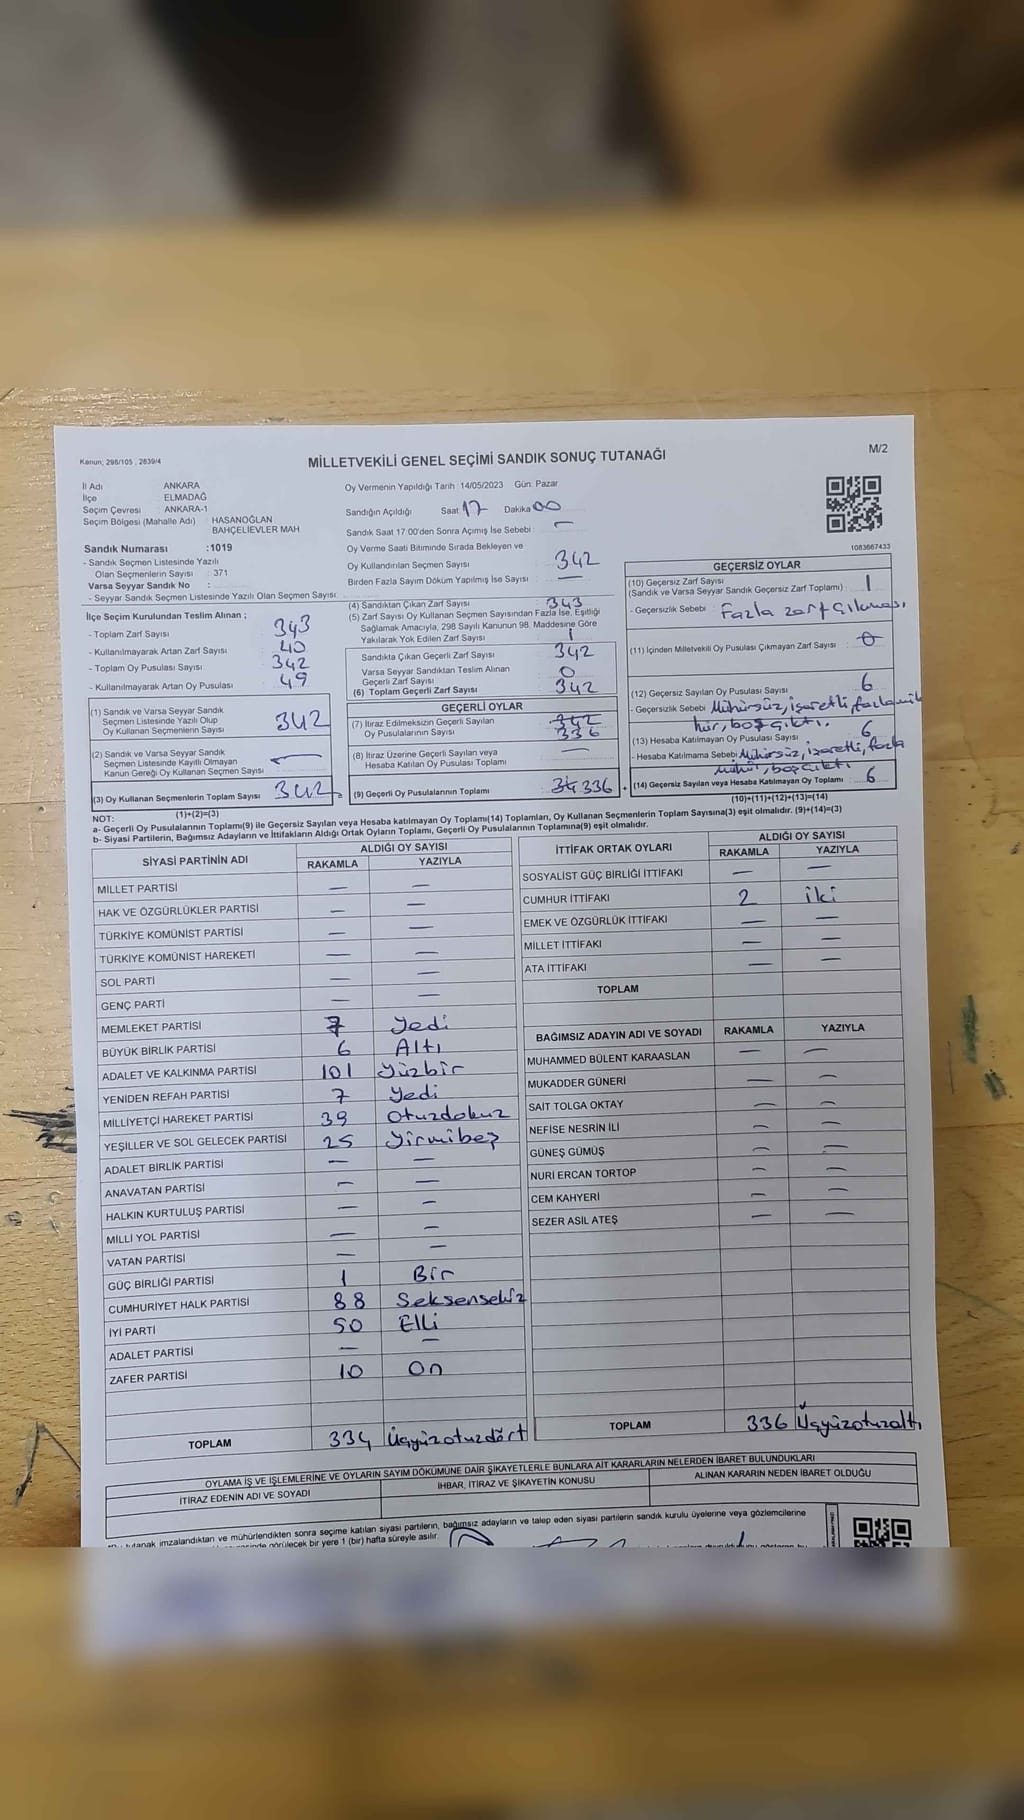 Kanun; 298/105 , 2839/4
MİLLETVEKİLİ GENEL SEÇİMİ SANDIK SONUÇ TUTANAĞI
M/2
İl Adı ANKARA
İlçe ELMADAĞ
Seçim Çevresi : ANKARA-1
Seçim Bölgesi (Mahalle Adı) HASANOĞLAN
BAHÇELİEVLER MAH
Sandık Numarası :1019
- Sandık Seçmen Listesinde Yazılı
Olan Seçmenlerin Sayısı : 371
Varsa Seyyar Sandık No :
- Seyyar Sandık Seçmen Listesinde Yazılı Olan Seçmen Sayısı
Oy Vermenin Yapıldığı Tarih : 14/05/2023 Gün: Pazar
Sandığın Açıldığı Saat 17 Dakika 00
Sandık Saat 17:00'den Sonra Açımış İse Sebebi : –
Oy Verme Saati Bitiminde Sırada Bekleyen ve
Oy Kullandırılan Seçmen Sayısı 342
Birden Fazla Sayım Döküm Yapılmış İse Sayısı —
1083667433
İlçe Seçim Kurulundan Teslim Alınan ;
- Toplam Zarf Sayısı : 343
- Kullanılmayarak Artan Zarf Sayısı : 40
- Toplam Oy Pusulası Sayısı : 342
- Kullanılmayarak Artan Oy Pusulası : 49
(1) Sandık ve Varsa Seyyar Sandık
Seçmen Listesinde Yazılı Olup
Oy Kullanan Seçmenlerin Sayısı 342
(2) Sandık ve Varsa Seyyar Sandık
Seçmen Listesinde Kayıtlı Olmayan
Kanun Gereği Oy Kullanan Seçmen Sayısı —
(3) Oy Kullanan Seçmenlerin Toplam Sayısı 342
(1)+(2)=(3)
(4) Sandıktan Çıkan Zarf Sayısı 343
(5) Zarf Sayısı Oy Kullanan Seçmen Sayısından Fazla İse, Eşitliği
Sağlamak Amacıyla, 298 Sayılı Kanunun 98. Maddesine Göre
Yakılarak Yok Edilen Zarf Sayısı 1
Sandıkta Çıkan Geçerli Zarf Sayısı 342
Varsa Seyyar Sandıktan Teslim Alınan
Geçerli Zarf Sayısı 0
(6) Toplam Geçerli Zarf Sayısı 342
GEÇERLİ OYLAR
(7) İtiraz Edilmeksizin Geçerli Sayılan 342
Oy Pusulalarının Sayısı 336
(8) İtiraz Üzerine Geçerli Sayılan veya
Hesaba Katılan Oy Pusulası Toplamı —
(9) Geçerli Oy Pusulalarının Toplamı 34 336
GEÇERSİZ OYLAR
(10) Geçersiz Zarf Sayısı
(Sandık ve Varsa Seyyar Sandık Geçersiz Zarf Toplamı) : 1
- Geçersizlik Sebebi : Fazla zarf çıkması
(11) İçinden Milletvekili Oy Pusulası Çıkmayan Zarf Sayısı : 0
(12) Geçersiz Sayılan Oy Pusulası Sayısı 6
- Geçersizlik Sebebi Mühürsüz, işaretli, fazla mü
hür, boş çıktı.
(13) Hesaba Katılmayan Oy Pusulası Sayısı 6
- Hesaba Katılmama Sebebi Mühürsüz, işaretli, fazla
mühür, boş çıktı
(14) Geçersiz Sayılan veya Hesaba Katılmayan Oy Toplamı : 6
(10)+(11)+(12)+(13)=(14)
NOT:
a- Geçerli Oy Pusulalarının Toplamı(9) ile Geçersiz Sayılan veya Hesaba katılmayan Oy Toplamı(14) Toplamları, Oy Kullanan Seçmenlerin Toplam Sayısına(3) eşit olmalıdır. (9)+(14)=(3)
b- Siyasi Partilerin, Bağımsız Adayların ve İttifakların Aldığı Ortak Oyların Toplamı, Geçerli Oy Pusulalarının Toplamına(9) eşit olmalıdır.
SİYASİ PARTİNİN ADI ALDIĞI OY SAYISI
RAKAMLA YAZIYLA
MİLLET PARTİSİ — —
HAK VE ÖZGÜRLÜKLER PARTİSİ — —
TÜRKİYE KOMÜNİST PARTİSİ — —
TÜRKİYE KOMÜNİST HAREKETİ — —
SOL PARTİ — —
GENÇ PARTİ — —
MEMLEKET PARTİSİ 7 Yedi
BÜYÜK BİRLİK PARTİSİ 6 Altı
ADALET VE KALKINMA PARTİSİ 101 Yüzbir
YENİDEN REFAH PARTİSİ 7 Yedi
MİLLİYETÇİ HAREKET PARTİSİ 39 Otuzdokuz
YEŞİLLER VE SOL GELECEK PARTİSİ 25 Yirmibeş
ADALET BİRLİK PARTİSİ — —
ANAVATAN PARTİSİ — —
HALKIN KURTULUŞ PARTİSİ — —
MİLLİ YOL PARTİSİ — —
VATAN PARTİSİ — —
GÜÇ BİRLİĞİ PARTİSİ 1 Bir
CUMHURİYET HALK PARTİSİ 88 Seksensekiz
İYİ PARTİ 50 Elli
ADALET PARTİSİ — —
ZAFER PARTİSİ 10 On
TOPLAM 334 Üçyüzotuzdört
İTTİFAK ORTAK OYLARI ALDIĞI OY SAYISI
RAKAMLA YAZIYLA
SOSYALİST GÜÇ BİRLİĞİ İTTİFAKI — —
CUMHUR İTTİFAKI 2 iki
EMEK VE ÖZGÜRLÜK İTTİFAKI — —
MİLLET İTTİFAKI — —
ATA İTTİFAKI — —
TOPLAM
BAĞIMSIZ ADAYIN ADI VE SOYADI RAKAMLA YAZIYLA
MUHAMMED BÜLENT KARAASLAN — —
MUKADDER GÜNERİ — —
SAİT TOLGA OKTAY — —
NEFİSE NESRİN İLİ — —
GÜNEŞ GÜMÜŞ — —
NURİ ERCAN TORTOP — —
CEM KAHYERİ — —
SEZER ASİL ATEŞ — —
TOPLAM 336 Üçyüzotuzaltı
OYLAMA İŞ VE İŞLEMLERİNE VE OYLARIN SAYIM DÖKÜMÜNE DAİR ŞİKAYETLERLE BUNLARA AİT KARARLARIN NELERDEN İBARET BULUNDUKLARI
İTİRAZ EDENİN ADI VE SOYADI İHBAR, İTİRAZ VE ŞİKAYETİN KONUSU ALINAN KARARIN NEDEN İBARET OLDUĞU
tutanak imzalandıktan ve mühürlendikten sonra seçime katılan siyasi partilerin, bağımsız adayların ve talep eden siyasi partilerin sandık kurulu üyelerine veya gözlemcilerine
görülecek bir yere 1 (bir) hafta süreyle asılır.